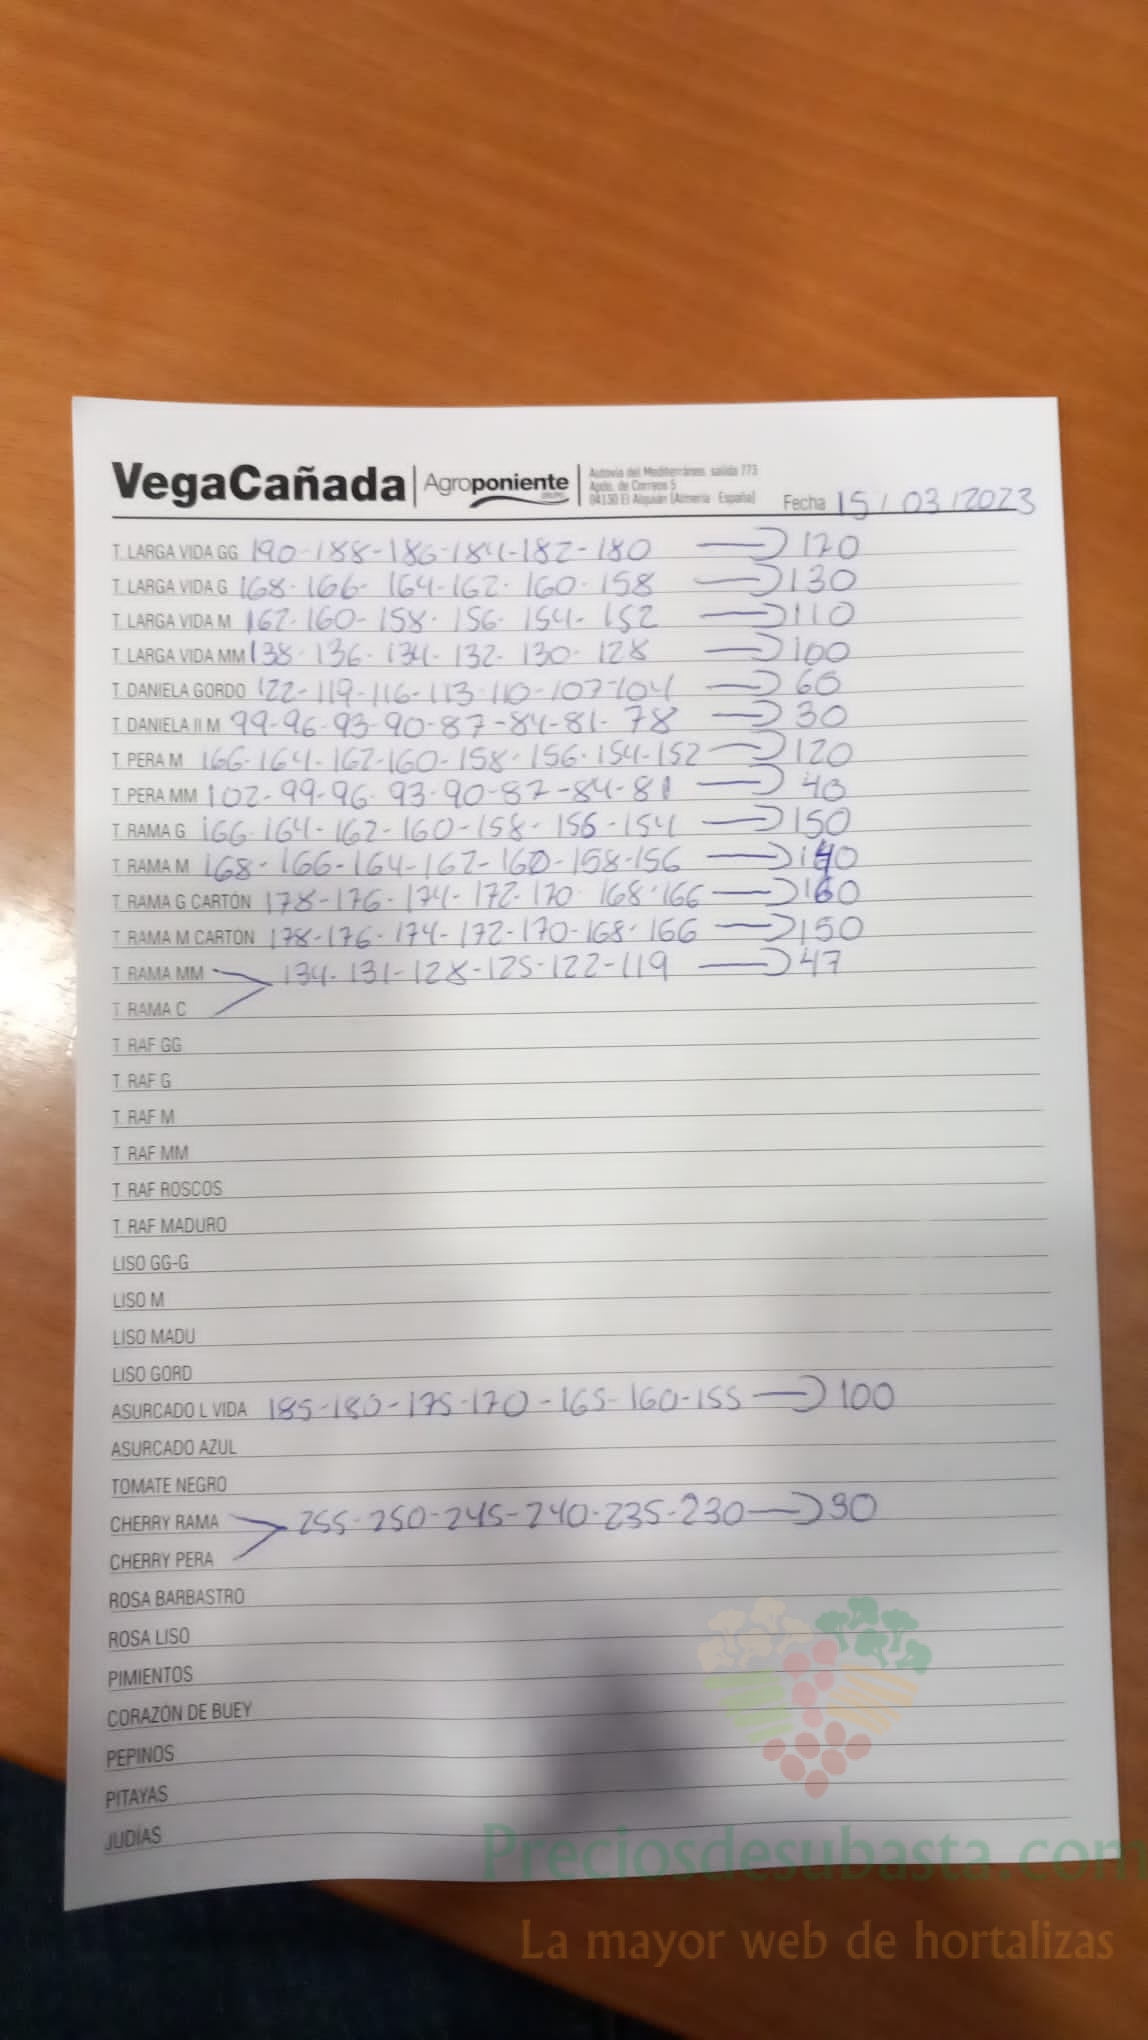 VegaCañada
Agroponiente
Autovía del Mediterráneo, salida 773
Apdo. de Correos 5
04130 El Alquián (Almería - España)
Fecha 15 / 03 / 2023
T. LARGA VIDA GG 190-188-186-184-182-180 → 170
T. LARGA VIDA G 168-166-164-162-160-158 → 130
T. LARGA VIDA M 162-160-158-156-154-152 → 110
T. LARGA VIDA MM 138-136-134-132-130-128 → 100
T. DANIELA GORDO 122-119-116-113-110-107-104 → 60
T. DANIELA II M 99-96-93-90-87-84-81-78 → 30
T. PERA M 166-164-162-160-158-156-154-152 → 120
T. PERA MM 102-99-96-93-90-87-84-81 → 40
T. RAMA G 166-164-162-160-158-156-154 → 150
T. RAMA M 168-166-164-162-160-158-156 → 140
T. RAMA G CARTÓN 178-176-174-172-170-168-166 → 160
T. RAMA M CARTÓN 178-176-174-172-170-168-166 → 150
T. RAMA MM 134-131-128-125-122-119 → 47
T. RAMA C
T. RAF GG
T. RAF G
T. RAF M
T. RAF MM
T. RAF ROSCOS
T. RAF MADURO
LISO GG-G
LISO M
LISO MADU
LISO GORD
ASURCADO L VIDA 185-180-175-170-165-160-155 → 100
ASURCADO AZUL
TOMATE NEGRO
CHERRY RAMA 255-250-245-240-235-230 → 30
CHERRY PERA
ROSA BARBASTRO
ROSA LISO
PIMIENTOS
CORAZÓN DE BUEY
PEPINOS
PITAYAS
JUDÍAS
Preciosdesubasta.com
La mayor web de hortalizas